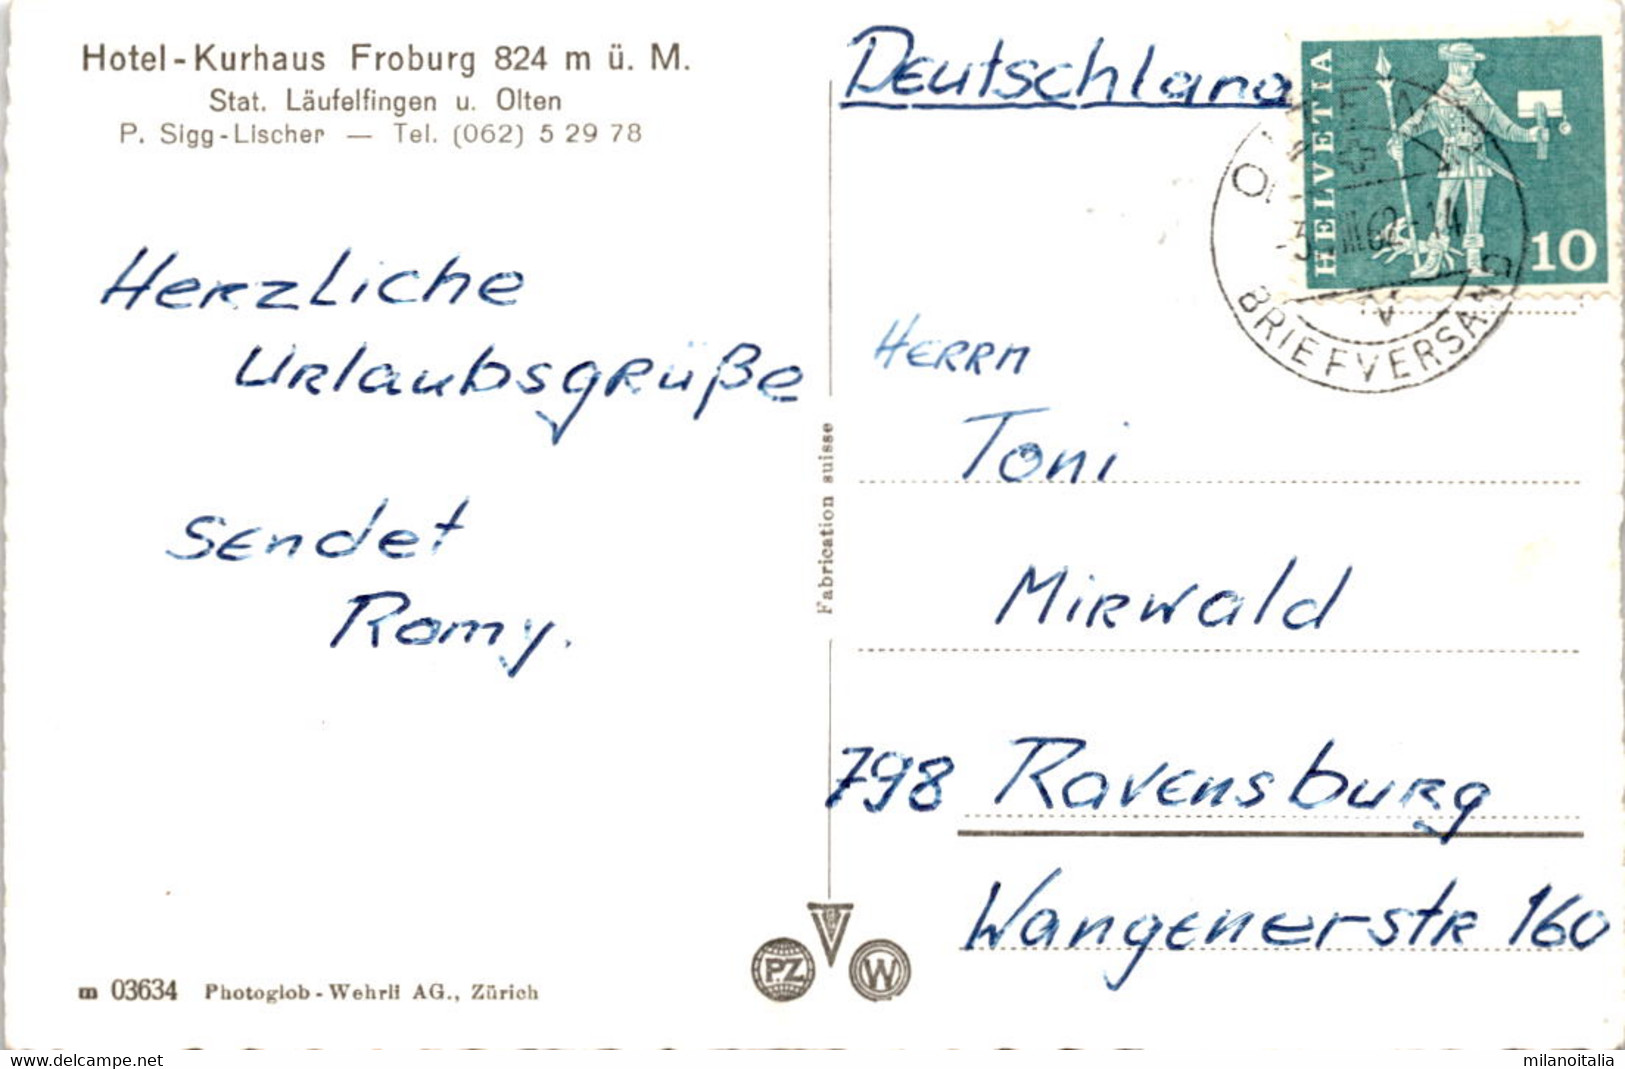 Hotel-Kurhaus Froburg 824 m ü. M.
Stat. Läufelfingen u. Olten
P. Sigg-Lischer — Tel. (062) 5 29 78
Herzliche
Urlaubsgrüße
sendet
Romy.
m 03634 Photoglob-Wehrli AG., Zürich
Fabrication suisse
PZ
W
Deutschland
HELVETIA
10
62-14
BRIEFVERSAND
Herrn
Toni
Mirwald
798 Ravensburg
Wangenerstr 160
www.delcampe.net
milanoitalia